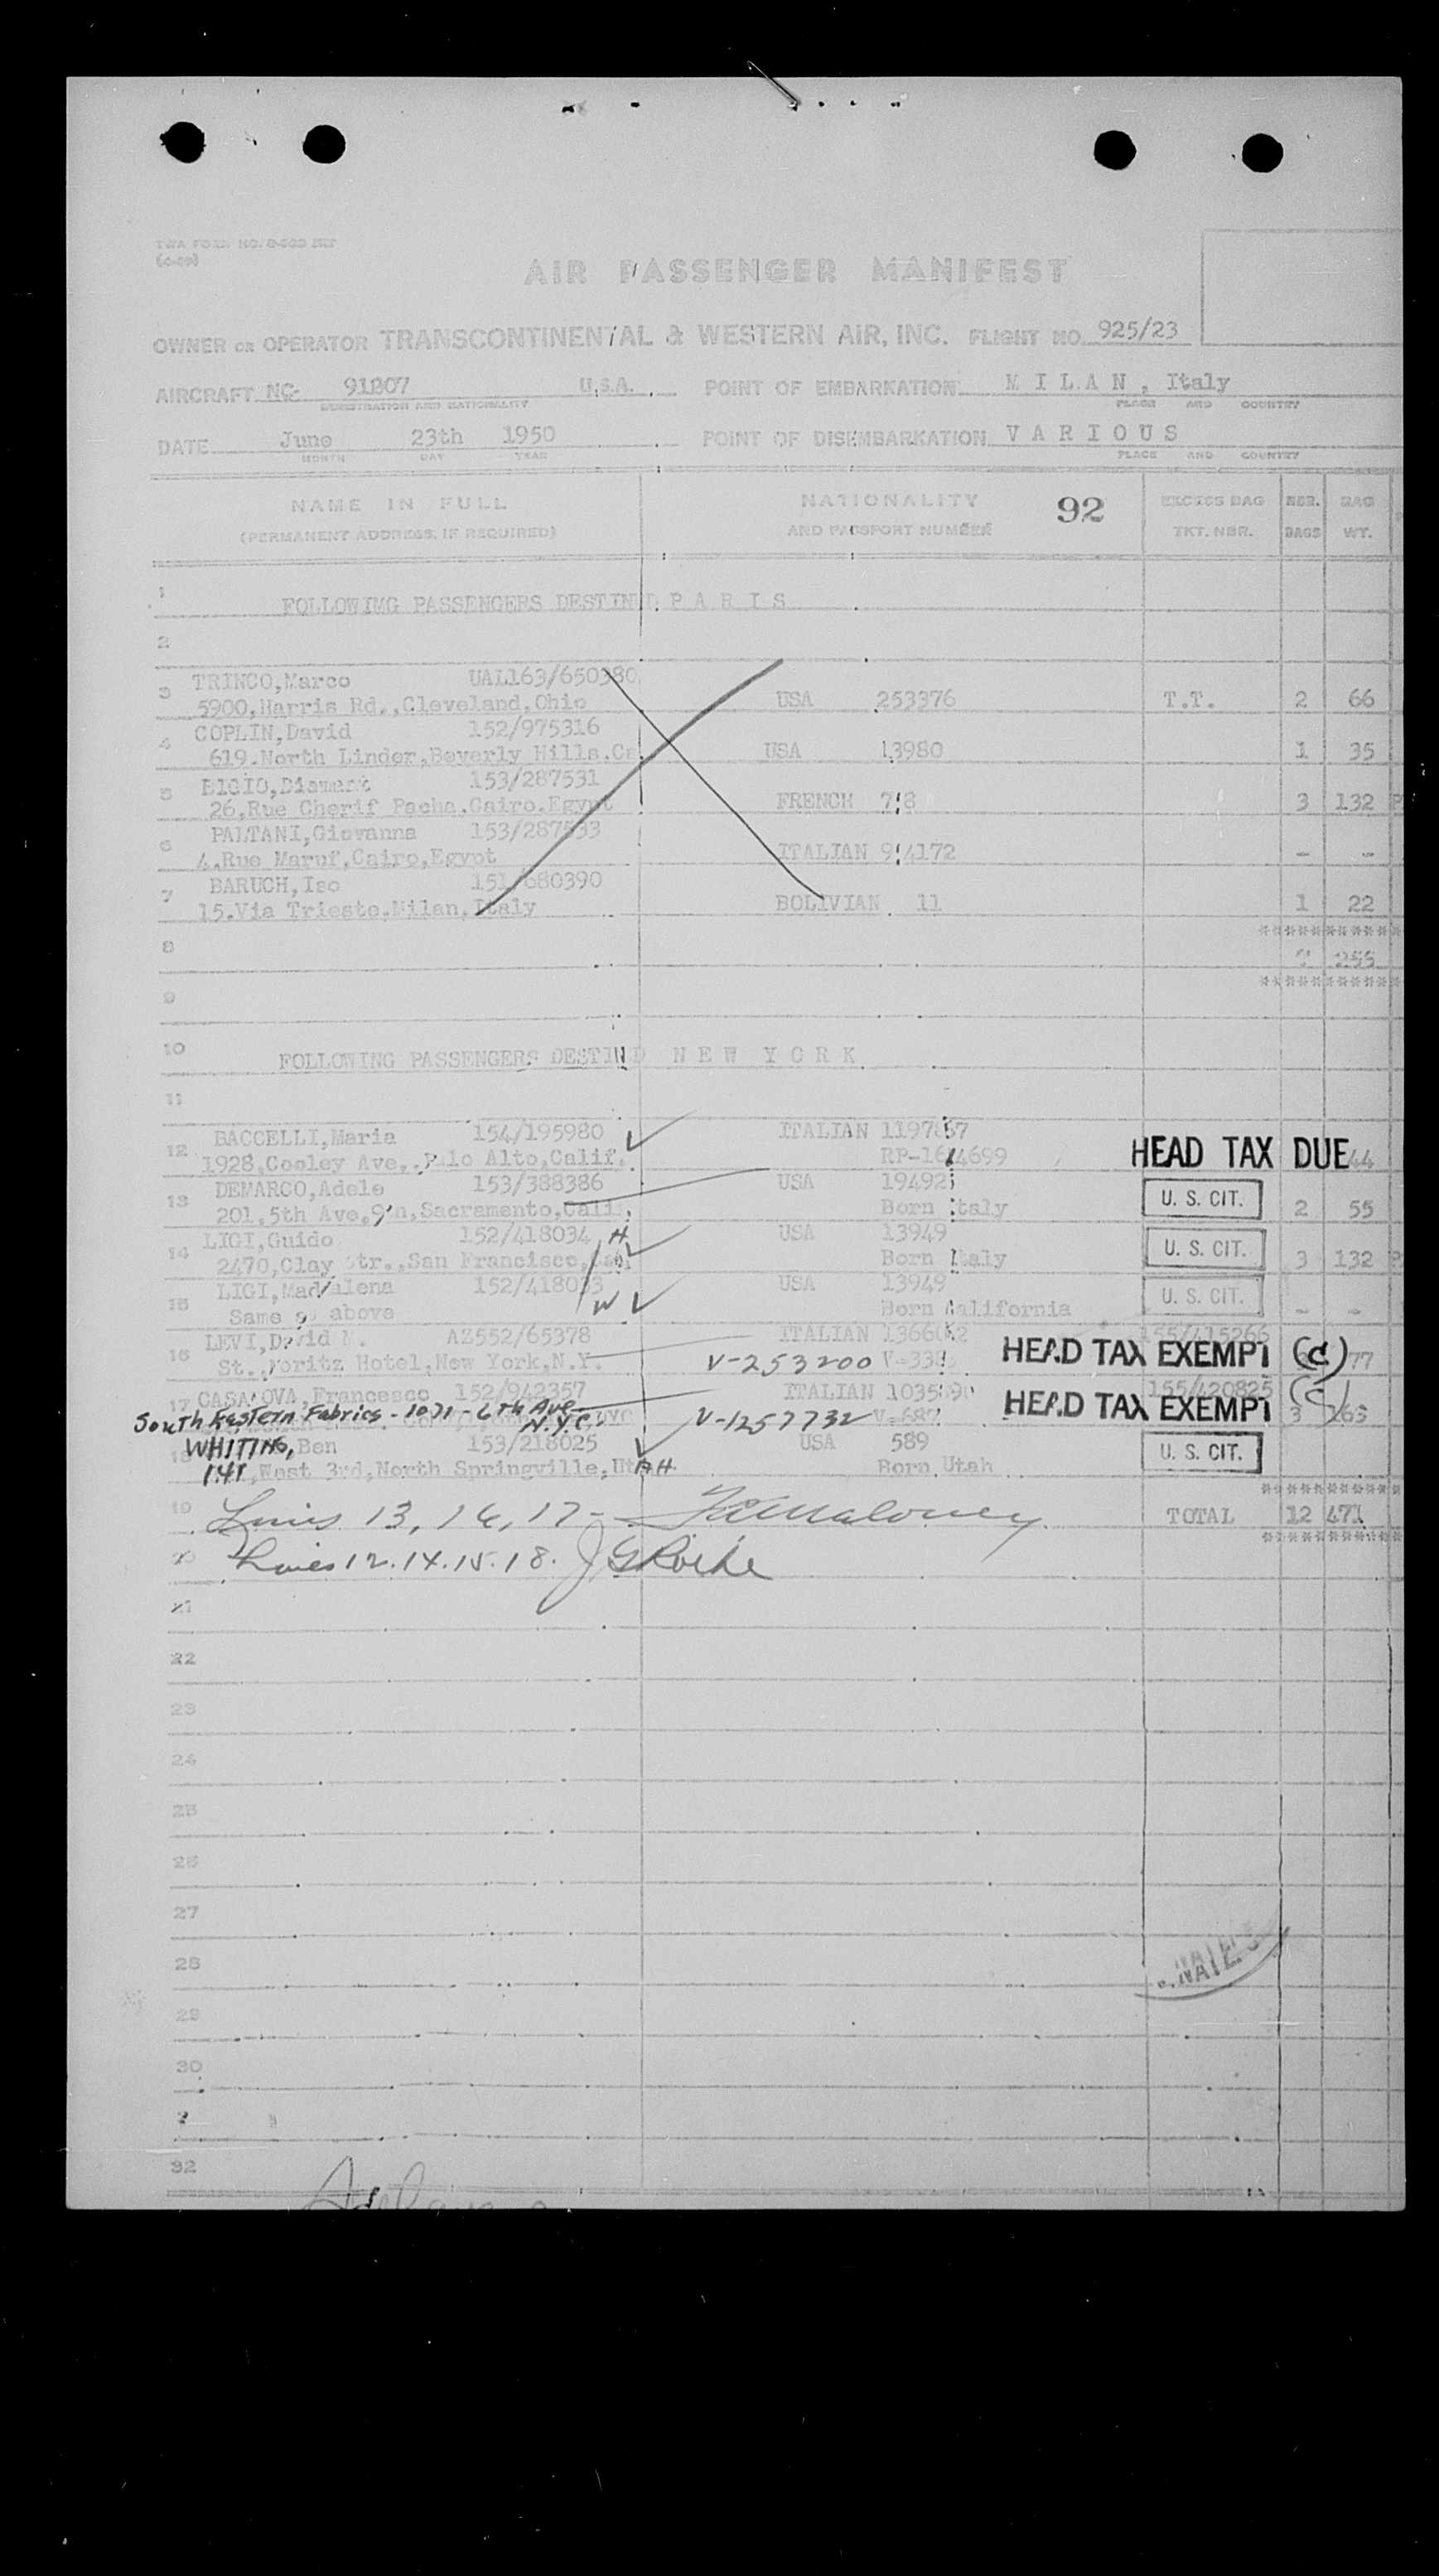 TWA FORM NO.
AIR PASSENGER MANIFEST
OWNER OR OPERATOR TRANSCONTINENTAL & WESTERN AIR, INC. FLIGHT NO. 925/23
AIRCRAFT NC- 91807 U.S.A. POINT OF EMBARKATION M I L A N , Italy
REGISTRATION AND NATIONALITY PLACE AND COUNTRY
DATE June 23th 1950 POINT OF DISEMBARKATION V A R I O U S
MONTH DAY YEAR PLACE AND COUNTRY
NAME IN FULL NATIONALITY 92 EXCESS BAG NBR. BAG
(PERMANENT ADDRESS, IF REQUIRED) AND PASSPORT NUMBER TKT. NBR. BAGS WT.
1 FOLLOWIMG PASSENGERS DESTIND P A R I S
2
TRINCO,Marco UAL163/650380
3 5900,Harris Rd.,Cleveland,Ohio USA 253376 T.T. 2 66
COPLIN,David 152/975316
4 619.North Linder,Beverly Hills.Ca USA 13980 1 35
153/287531
5 26,Rue Cherif Pacha.Cairo.Egypt FRENCH 3 132
PALTANI,Giovanna 153/287533
6 4.Rue Maruf,Cairo,Egypt ITALIAN 9 4172 - -
BARUCH,Iso 151/680390
7 15.Via Trieste,Milan,Italy BOLIVIAN 11 1 22
***********
8 255
***********
9
10 FOLLOWING PASSENGERS DESTIND N E W Y O R K
11
BACCELLI,Maria 154/195980 ITALIAN
12 1928,Cooley Ave,.Palo Alto,Calif. HEAD TAX DUE 44
DEMARCO,Adele 153/388386 USA
13 201.5th Ave, Sacramento,Calif. Born Italy U. S. CIT. 2 55
LIGI,Guido 152/418034 H USA 13949
14 2470,Clay Str.,San Francisco, Born Italy U. S. CIT. 3 132
LIGI,Maddalena 152/418033 USA 13949
15 Same as above W Born California U. S. CIT. - -
LEVI,David M. AZ552/65378 ITALIAN 155/415266
16 St.Moritz Hotel,New York,N.Y. V-253200 HEAD TAX EXEMPT (C) 77
17 CASANOVA,Francesco 152/942357 ITALIAN 155/420825
South Eastern Fabrics - 1071 - 6th Ave N.Y.C. V-1257732 HEAD TAX EXEMPT (C) 3 163
WHITING, Ben 153/218025 USA 589
18 141,West 3rd,North Springville,UtAH Born Utah U. S. CIT.
***********
19 Lines 13, 16, 17 - Maloney TOTAL 12 471
***********
Lines 12.14.15.18. J G Roche
21
22
23
24
25
26
27
28
29
30
32